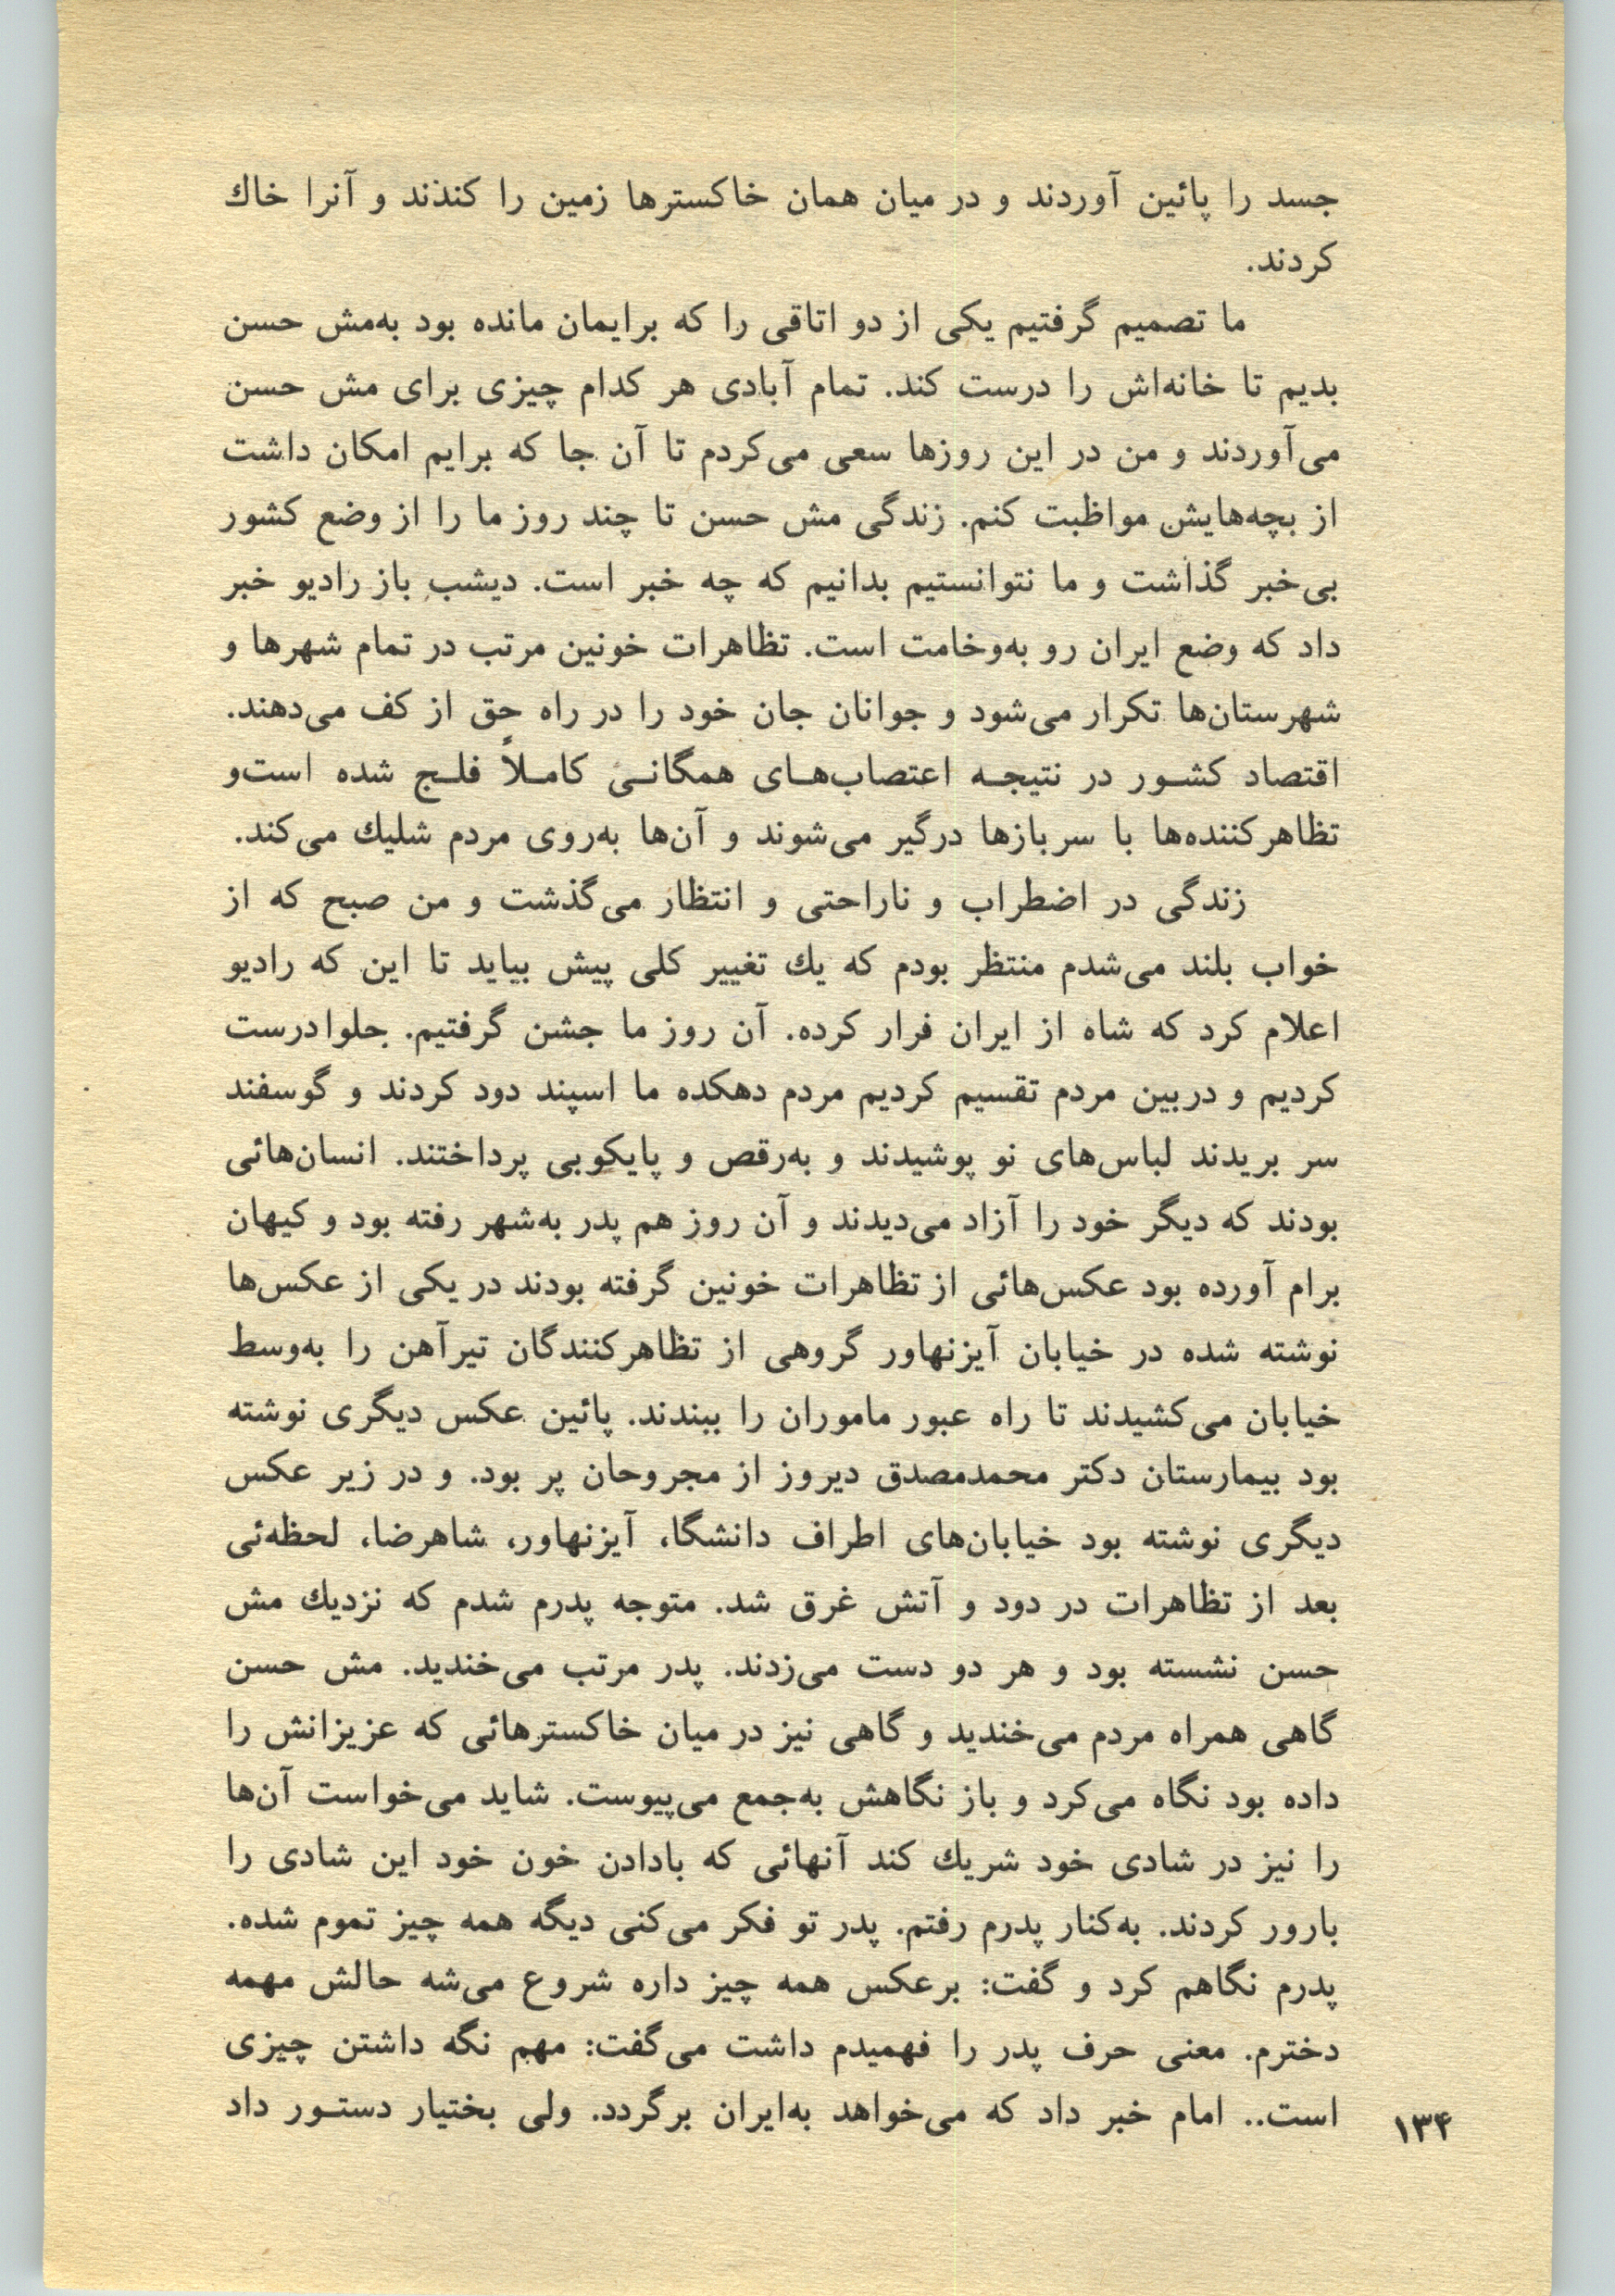 جسد را پائین آوردند و در میان همان خاکسترها زمین را کندند و آنرا خاك
کردند.
ما تصمیم گرفتیم یکی از دو اتاقی را که برایمان مانده بود به‌مش حسن
بدیم تا خانه‌اش را درست کند. تمام آبادی هر کدام چیزی برای مش حسن
می‌آوردند و من در این روزها سعی می‌کردم تا آن جا که برایم امکان داشت
از بچه‌هایش مواظبت کنم. زندگی مش حسن تا چند روز ما را از وضع کشور
بی‌خبر گذاشت و ما نتوانستیم بدانیم که چه خبر است. دیشب باز رادیو خبر
داد که وضع ایران رو به‌وخامت است. تظاهرات خونین مرتب در تمام شهرها و
شهرستان‌ها تکرار می‌شود و جوانان جان خود را در راه حق از کف می‌دهند.
اقتصاد کشـور در نتیجـه اعتصاب‌هـای همگانـی کامـلاً فلـج شده است‌و
تظاهرکننده‌ها با سربازها درگیر می‌شوند و آن‌ها به‌روی مردم شلیك می‌کند.
زندگی در اضطراب و ناراحتی و انتظار می‌گذشت و من صبح که از
خواب بلند می‌شدم منتظر بودم که یك تغییر کلی پیش بیاید تا این که رادیو
اعلام کرد که شاه از ایران فرار کرده. آن روز ما جشن گرفتیم. حلوادرست
کردیم و دربین مردم تقسیم کردیم مردم دهکده ما اسپند دود کردند و گوسفند
سر بریدند لباس‌های نو پوشیدند و به‌رقص و پایکوبی پرداختند. انسان‌هائی
بودند که دیگر خود را آزاد می‌دیدند و آن روز هم پدر به‌شهر رفته بود و کیهان
برام آورده بود عکس‌هائی از تظاهرات خونین گرفته بودند در یکی از عکس‌ها
نوشته شده در خیابان آیزنهاور گروهی از تظاهرکنندگان تیرآهن را به‌وسط
خیابان می‌کشیدند تا راه عبور ماموران را ببندند. پائین عکس دیگری نوشته
بود بیمارستان دکتر محمدمصدق دیروز از مجروحان پر بود. و در زیر عکس
دیگری نوشته بود خیابان‌های اطراف دانشگا، آیزنهاور، شاهرضا، لحظه‌ئی
بعد از تظاهرات در دود و آتش غرق شد. متوجه پدرم شدم که نزدیك مش
حسن نشسته بود و هر دو دست می‌زدند. پدر مرتب می‌خندید. مش حسن
گاهی همراه مردم می‌خندید و گاهی نیز در میان خاکسترهائی که عزیزانش را
داده بود نگاه می‌کرد و باز نگاهش به‌جمع می‌پیوست. شاید می‌خواست آن‌ها
را نیز در شادی خود شریك کند آنهائی که بادادن خون خود این شادی را
بارور کردند. به‌کنار پدرم رفتم. پدر تو فکر می‌کنی دیگه همه چیز تموم شده.
پدرم نگاهم کرد و گفت: برعکس همه چیز داره شروع می‌شه حالش مهمه
دخترم. معنی حرف پدر را فهمیدم داشت می‌گفت: مهم نگه داشتن چیزی
است.. امام خبر داد که می‌خواهد به‌ایران برگردد. ولی بختیار دستـور داد
۱۳۴